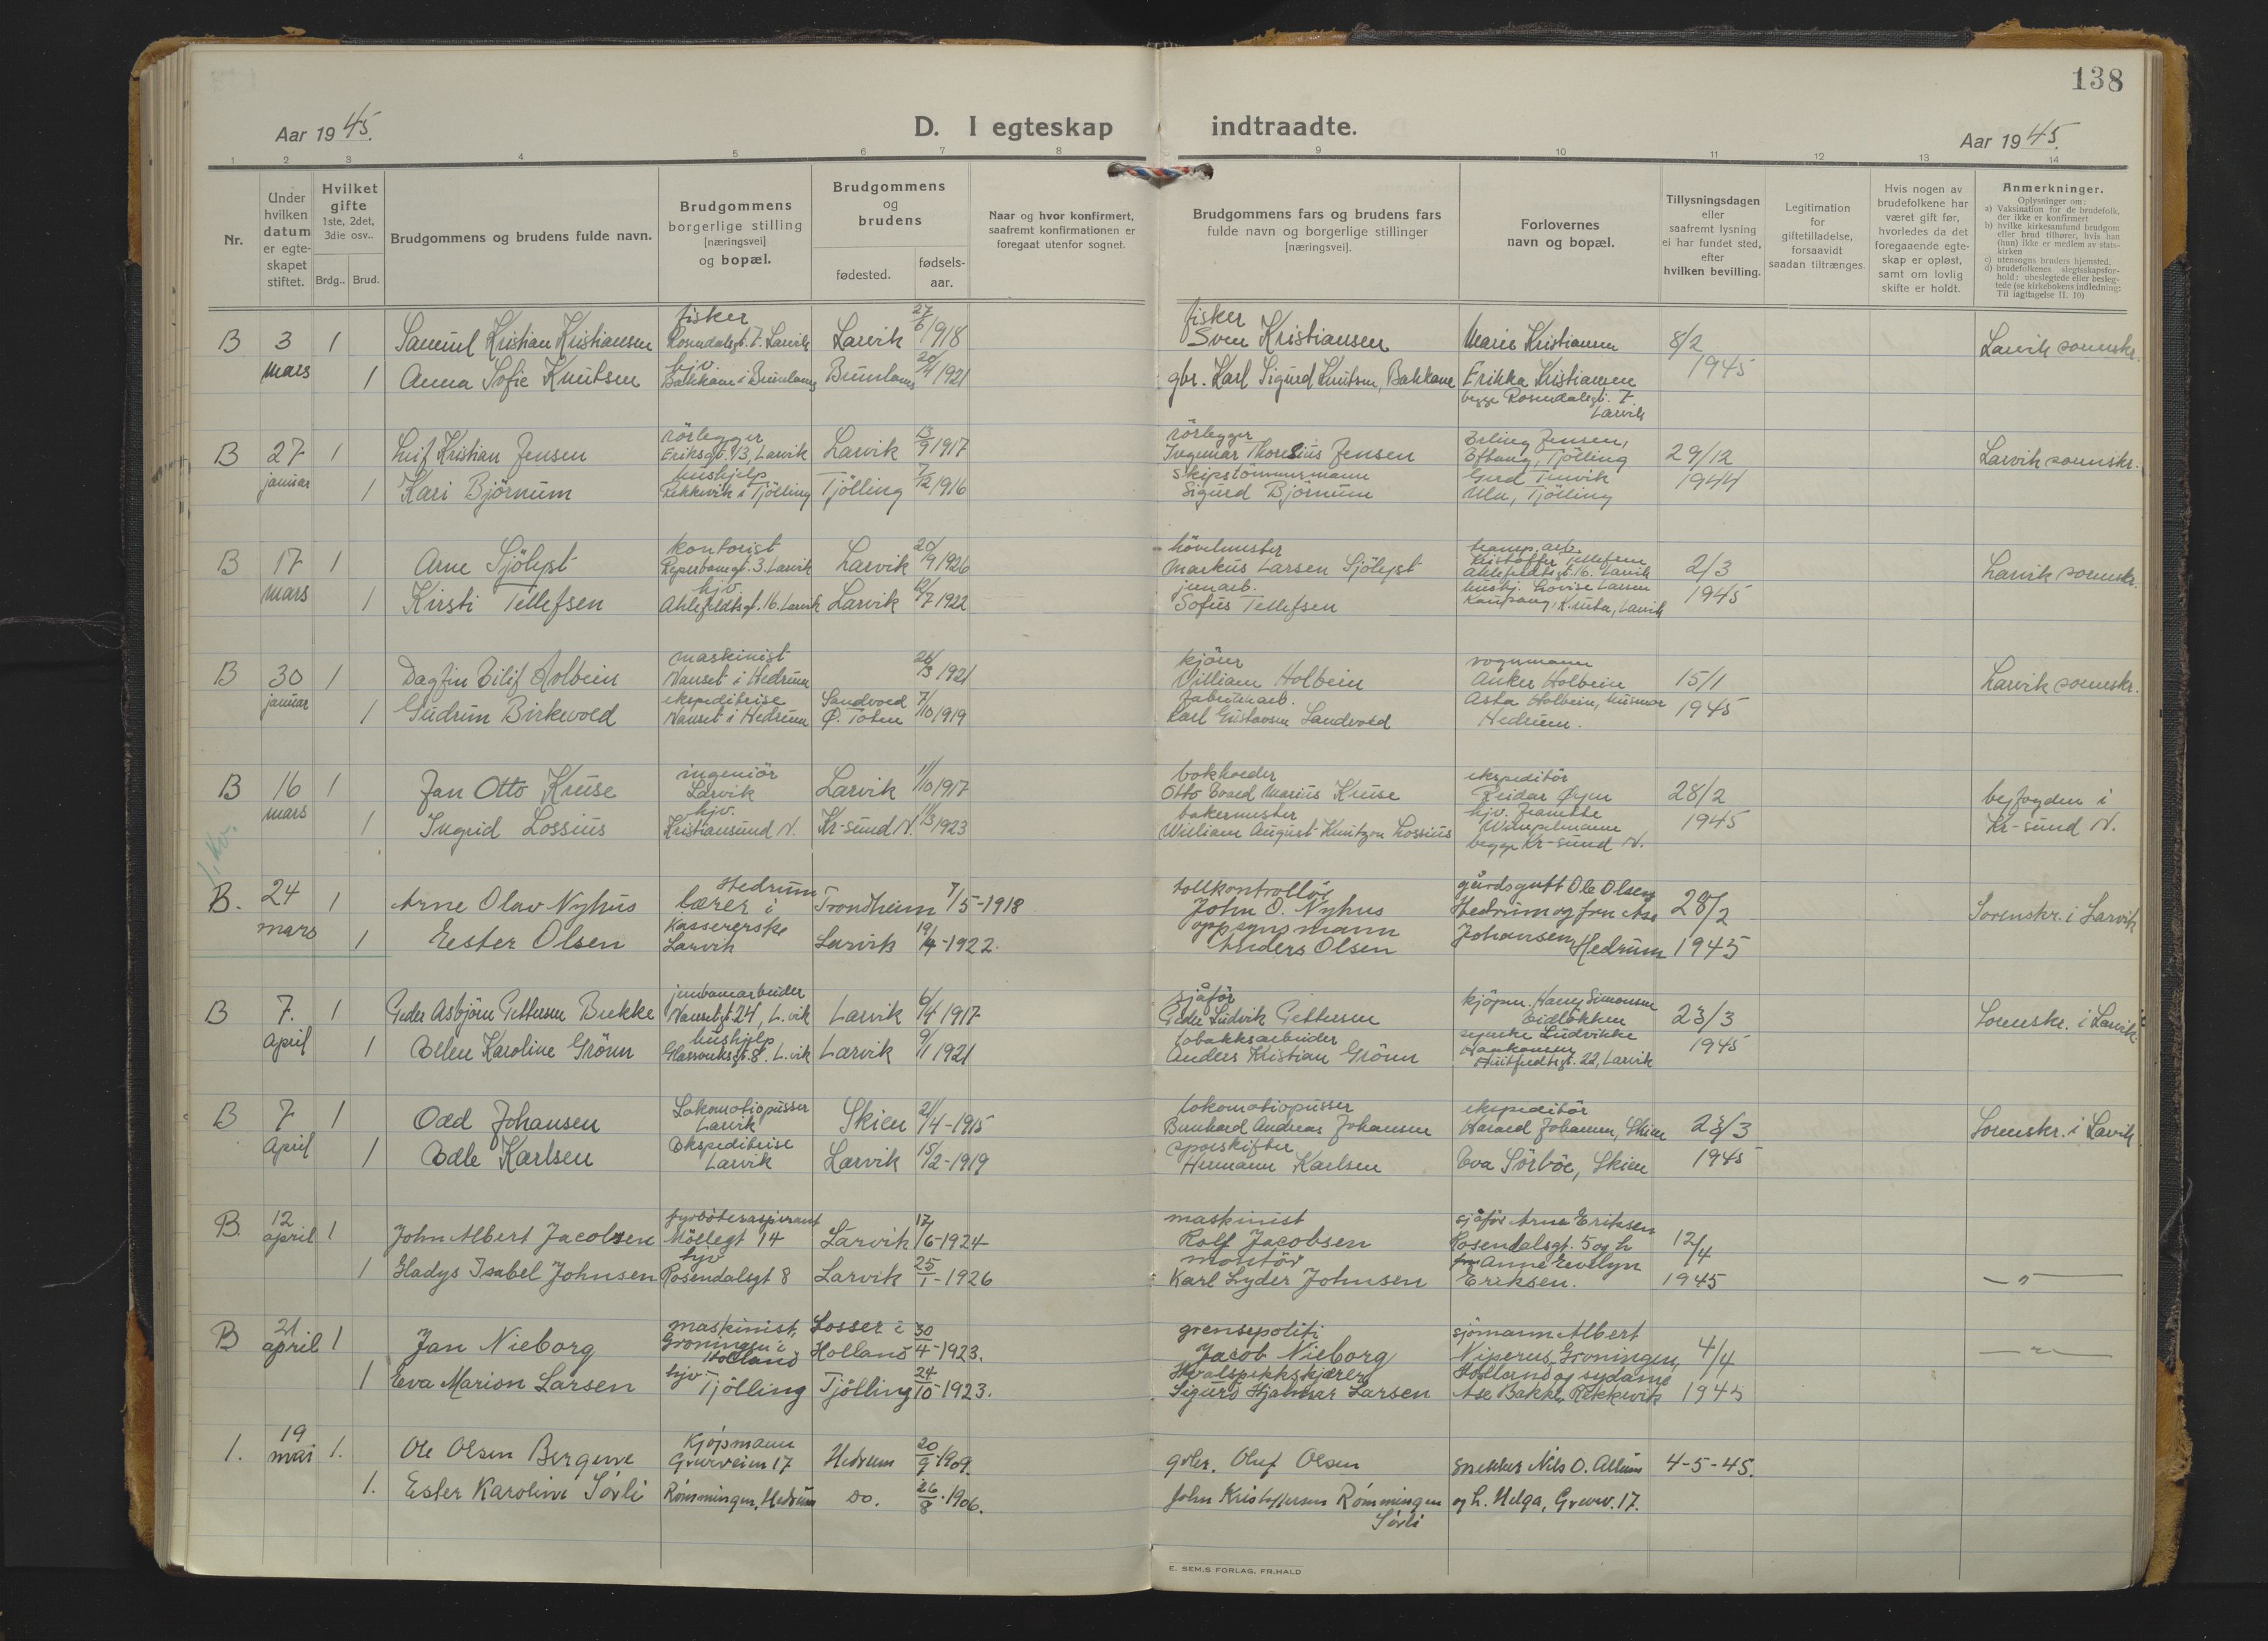 138
Aar 1945.
D. I egteskap indtraadte.
Aar 1945.
1 2 3 4 5 6 7 8 9 10 11 12 13 14
Nr.
Under hvilken datum er egte-skapet stiftet.
Hvilket gifte
1ste, 2det, 3die osv..
Brdg.. Brud.
Brudgommens og brudens fulde navn.
Brudgommens borgerlige stilling [næringsvei] og bopæl.
Brudgommens og brudens
fødested.
fødsels-aar.
Naar og hvor konfirmert, saafremt konfirmationen er foregaat utenfor sognet.
Brudgommens fars og brudens fars fulde navn og borgerlige stillinger [næringsvei].
Forlovernes navn og bopæl.
Tillysningsdagen eller saafremt lysning ei har fundet sted, efter hvilken bevilling.
Legitimation for giftetilladelse, forsaavidt saadan tiltrænges.
Hvis nogen av brudefolkene har været gift før, hvorledes da det foregaaende egte-skap er opløst, samt om lovlig skifte er holdt.
Anmerkninger.
Oplysninger om:
a) Vaksination for de brudefolk, der ikke er konfirmert
b) hvilke kirkesamfund brudgom eller brud tilhører, hvis han (hun) ikke er medlem av stats-kirken
c) utensogns bruders hjemsted.
d) brudefolkenes slegtsskapsfor-hold: ubeslegtede eller besleg-tede (se kirkebokens indledning: Til iagttagelse II. 10)
fisker 27 fisker
B 3 1 Samuel Kristian Kristiansen Rosendalsgt. 7. Larvik Larvik 6/1918 Sven Kristiansen Marie Kristiansen 8/2 Larvik sorenskr.
mars hjv. 20
1 Anna Sofie Knutsen Bakkane i Brunlanes Brunlanes 1921 gbr. Karl Sigurd Knutsen, Bakkane Erikka Kristiansen 1945
begge Rosendalsgt. 7
Larvik
rörlegger 13 rörlegger Erling Jensen,
B 27 1 Leif Kristian Jensen Eriksgt. 13, Larvik Larvik 9 1917 Ingemar Thoresius Jensen Eftang, Tjölling 29/12 Larvik sorenskr.
januar hushjelp 7 skipstömmermann Gerd
1 Kari Björnum Rekkevik i Tjölling Tjölling 12 1916 Sigurd Björnum Ula, Tjölling 1944
kontorist 20 hövelmester transp. arb.
B 17 1 Arne Sjölyst Reperbanegt. 3. Larvik Larvik 9 1926 Markus Larsen Sjölyst Kristoffer Tellefsen 2/3 Larvik sorenskr.
Ahlefeldtsgt. 16. Larvik
mars hjv. 12 jernarb. hushj. Lovise Larsen
1 Kirsti Tellefsen Ahlefeldtsgt. 16. Larvik Larvik 7 1922 Sofus Tellefsen Kaupang, Larvik 1945
maskinist 26 kjörer vognmann
B 30 1 Dagfin Eilif Holbein Nanset i Hedrum 3 1921 William Holbein Anker Holbein 15/1 Larvik sorenskr.
januar ekspeditrise Sandvold 7/ fabrikkarb. Asta Holbein,
1 Gudrun Birkevold Nanset i Hedrum Ø. Toten 10 1919 Karl Gustavsen Sandvold Hedrum. 1945
ingeniör 11 bokholder ekspeditör
B 16 1 Jan Otto Kruse Larvik Larvik 10 1917 Otto Marius Kruse Reidar Øyen 28/2 byfogden i
mars hjv. 11 bakermester hjv. Jeanette
1 Ingrid Lossius Kristiansund N. Kr-sund N. 3 1923 William August Knitzon Lossius 1945 Kr-sund N.
begge Kr-sund N.
Hedrum tollkontrollör gårdsgutt Ole Olsen
B. 24 1 Arne Olav Nyhus lærer i Trondheim 7/5-1918 John O. Nyhus Hedrum og fru Åse 28/2 Sorenskr. i Larvik
mars kassererske 19 oppsynsmann
1 Ester Olsen Larvik Larvik 4-1922. Anders Olsen Johansen, Hedrum 1945
jernbanearbeider 6/ sjåför kjöpm. Harry Simonsen
B 7. 1 Peder Asbjörn Pettersen Brekke Nansetgt. 24, L.vik Larvik 4 1917 Peder Ludvik Pettersen 23/3 Sorenskr. i Larvik
april hushjelp 9 tobakksarbeider syerske Ludvikke
1 Ellen Karoline Grönn Glassverksgt. 8. L.vik Larvik 11 1921 Anders Kristian Grönn Huitfeldtsgt. 22, Larvik 1945
Lokomotivpusser 21/ lokomotivpusser ekspeditör
B 7 1 Odd Johansen Larvik Skien 4-1915 Bernhard Andreas Johansen Harald Johansen, Skien 23/3 Sorenskr. i Larvik
April Ekspeditrise 15 sporskifter
1 Edle Karlsen Larvik Larvik 2-1919 Hermann Karlsen Eva Sörböe, Skien 1945
fyrböteraspirant 17 maskinist sjåför Arne Eriksen
B. 12 april 1 John Albert Jacobsen Möllegt 14 Larvik 6-1924 Rolf Jacobsen Rosendalsgt. 5 og h 12/4
hjv 25 montör Anne Evelyn
1 Gladys Isabel Johnsen Rosendalsgt 8 Larvik 1-1926 Karl Lyder Johnsen Eriksen. 1945 — " —
maskinist, Losser i 30 grensepoliti sjömann Albert
B 21 april 1 Jan Nieborg Groningen i Holland Holland 4-1923. Jacob Nieborg Niperus, Groningen, 4/4 — " —
hjv 24 Hvalspekkskjærer Holland og sydame
1 Eva Marion Larsen Tjölling Tjölling 10-1923. Sigurd Hjalmar Larsen Åse Bakke, Rekkevik 1945
Kjøpmann 20
1. 19 mai 1. Ole Olsen Bergene Greveveien 17 Hedrum 9-1909. gbr. Oluf Olsen snekker Nils O. Allum 4-5-45.
26
1. Ester Karoline Sørli Rømmingen, Hedrum do. 8-1906. John Kristoffersen Rømmingen og h. Helga, Grevev. 17.
Sørli
E. SEM.S FORLAG, FR.HALD